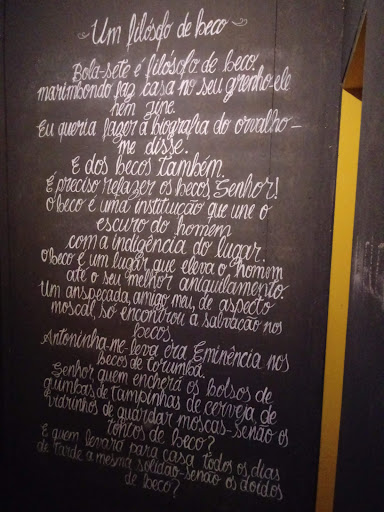 Um filósofo de beco
Bola-sete é filósofo de beco.
marimbondo faz casa no seu grenho-ele
nem zine.
Eu queria fazer a biografia do orvalho-
me disse.
E dos becos também.
É preciso refazer os becos, Senhor!
O beco é uma instituição que une o
escuro do homem
com a indigência do lugar.
O beco é um lugar que eleva o homem
até o seu melhor aniquilamento.
Um anspeçada, amigo meu, de aspecto
moscal, só encontrou a salvação nos
becos.
Antoninha-me-leva era Eminência nos
becos de Corumbá.
Senhor quem encherá os bolsos de
guimbas, de tampinhas de cerveja, de
vidrinhos de guardar moscas-senão os
tontos de beco?
E quem levará para casa todos os dias
de tarde a mesma solidão-senão os doidos
de beco?